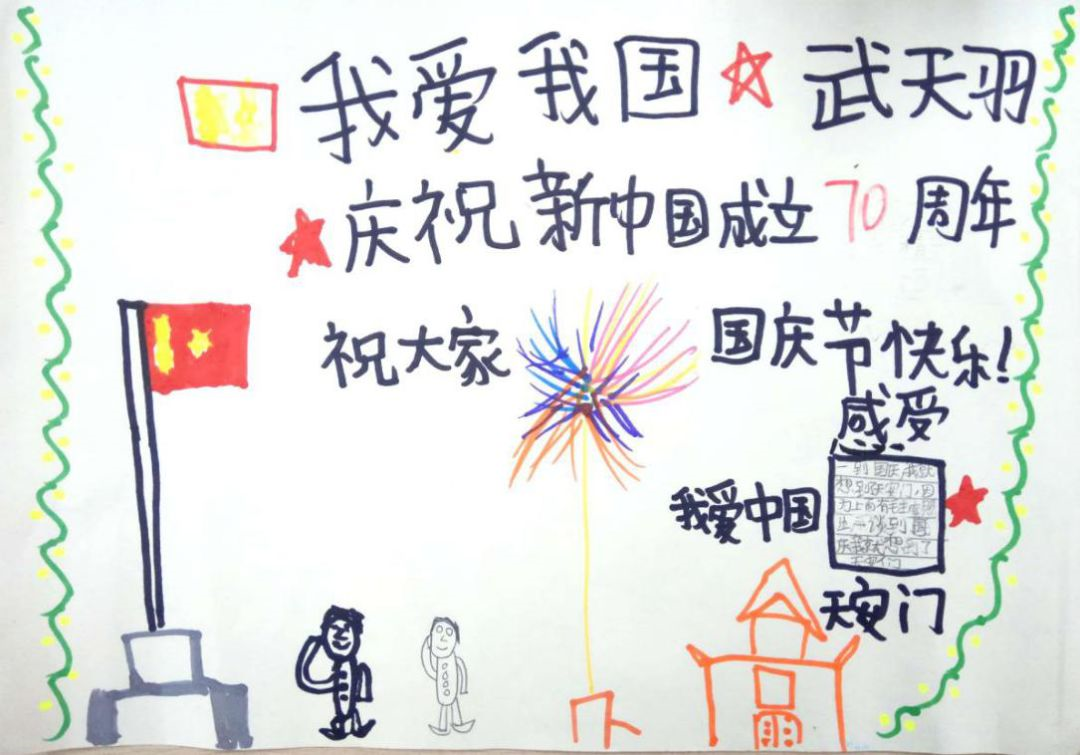 我爱我国 武天羽
庆祝新中国成立70周年
祝大家 国庆节快乐！
感受
我爱中国
一到国庆我就
想到天安门，因
为上面有毛主席
一谈到国
庆我就想到了
天安门
天安门